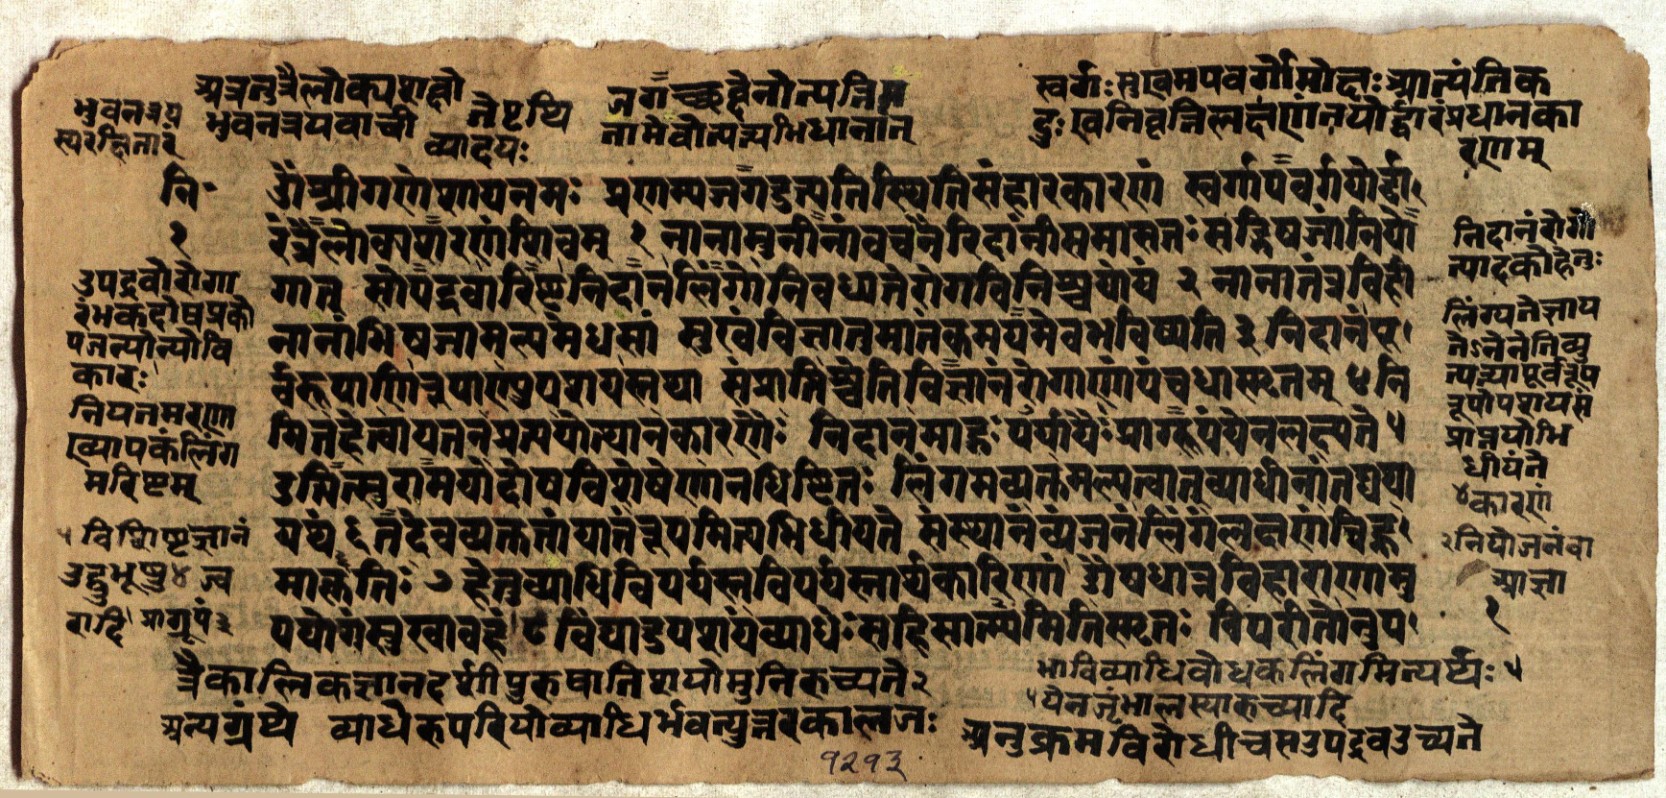 अत्रनुत्रैलोक्यशब्दो
भुवनत्रयवाची
भुवनत्रय
नेष्टथि
व्यादयः
नामेवोत्पत्त्यभिधानात्
स्वर्गः सुखमपवर्गोमोक्षः आत्यंतिक
दुःखनिवृत्तिलक्षणंतयोर्द्वारंप्रधानका
रणम्
नि॰
१
ॐ श्रीगणेशायनमः प्रणम्यजगदुत्पत्तिस्थितिसंहारकारणं स्वर्गापवर्गयोर्द्वा
रंत्रैलोक्यशरणंशिवम् १ नानामुनीनांवचनैरिदानींसमासतःसद्भिषजांनियो
गात् सोपद्रवारिष्टनिदानलिंगोनिबध्यतेरोगविनिश्चयोयं २ नानातंत्रविही
नानांभिषजामल्पमेधसां सुखंविज्ञातुमातंकमयमेवभविष्यति ३ निदानंपू
र्वरूपाणिरूपाण्युपशयस्तथा संप्राप्तिश्चेतिविज्ञानंरोगाणांपंचधास्मृतम् ४ नि
मित्तहेत्वायतनप्रत्ययोत्थानकारणैः निदानमाहुःपर्यायैःप्राग्रूपंयेनलक्ष्यते ५
उत्पित्सुरामयोदोषविशेषेणानधिष्टितः लिंगमव्यक्तमल्पत्वात्व्याधीनांतद्यथा
यथं ६ तदेवव्यक्ततांयातंरूपमित्यभिधीयते संस्थानंव्यंजनंलिंगंलक्षणंचिह्न
माकृतिः ७ हेतुव्याधिविपर्यस्तविपर्यस्तार्थकारिणां औषधान्नविहाराणामु
पयोगंसुखावहं ८ विद्यादुपशयंव्याधेःसहिसात्म्यमितिस्मृतः विपरीतोनुप
उपद्रवोरोगा
रंभकदोषप्रको
पजन्योन्योवि
कारः
नियतमरण
ख्यापकंलिंग
मरिष्टम्
विशिष्टज्ञानं
ज्व
रादि प्राग्रूपं
निदानंरोगो
त्पादकोहेतुः
लिंग्यतेज्ञाय
तेऽनेनेतिव्यु
त्पत्त्यापूर्वरूप
रूपोपशयसं
प्राप्तयोभि
धीयंते
४कारणं
२नियोजनंवा
आज्ञा
१
त्रैकालिकज्ञानदर्शीपुरुषातिशयोमुनिरुच्यते २
अन्यग्रंथे व्याधेरुपरियोव्याधिर्भवत्युत्तरकालजः
भाविव्याधिबोधकलिंगमित्यर्थः ५
५येनजृंभालस्यारुच्यादि
अनुक्रमविरोधीचसउपद्रवउच्यते
१२१३